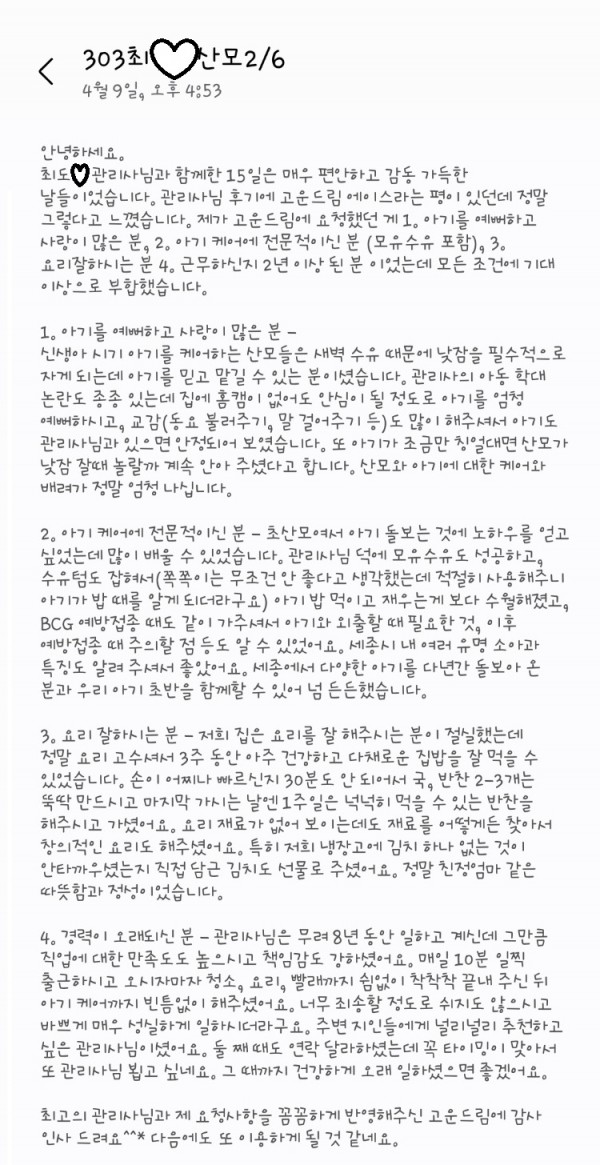 303최 산모2/6
4월 9일, 오후 4:53
안녕하세요.
최도 관리사님과 함께한 15일은 매우 편안하고 감동 가득한
날들이었습니다. 관리사님 후기에 고운드림 에이스라는 평이 있던데 정말
그렇다고 느꼈습니다. 제가 고운드림에 요청했던 게 1. 아기를 예뻐하고
사랑이 많은 분, 2. 아기 케어에 전문적이신 분 (모유수유 포함), 3.
요리잘하시는 분 4. 근무하신지 2년 이상 된 분 이었는데 모든 조건에 기대
이상으로 부합했습니다.
1. 아기를 예뻐하고 사랑이 많은 분 –
신생아 시기 아기를 케어하는 산모들은 새벽 수유 때문에 낮잠을 필수적으로
자게 되는데 아기를 믿고 맡길 수 있는 분이셨습니다. 관리사의 아동 학대
논란도 종종 있는데 집에 홈캠이 없어도 안심이 될 정도로 아기를 엄청
예뻐하시고, 교감(동요 불러주기, 말 걸어주기 등)도 많이 해주셔서 아기도
관리사님과 있으면 안정되어 보였습니다. 또 아기가 조금만 칭얼대면 산모가
낮잠 잘때 놀랄까 계속 안아 주셨다고 합니다. 산모와 아기에 대한 케어와
배려가 정말 엄청 나십니다.
2. 아기 케어에 전문적이신 분 – 초산모여서 아기 돌보는 것에 노하우를 얻고
싶었는데 많이 배울 수 있었습니다. 관리사님 덕에 모유수유도 성공하고,
수유텀도 잡혀서(쪽쪽이는 무조건 안 좋다고 생각했는데 적절히 사용해주니
아기가 밥 때를 알게 되더라구요) 아기 밥 먹이고 재우는게 보다 수월해졌고,
BCG 예방접종 때도 같이 가주셔서 아기와 외출할 때 필요한 것, 이후
예방접종 때 주의할 점 등도 알 수 있었어요. 세종시 내 여러 유명 소아과
특징도 알려 주셔서 좋았어요. 세종에서 다양한 아기를 다년간 돌보아 온
분과 우리 아기 초반을 함께할 수 있어 넘 든든했습니다.
3. 요리 잘하시는 분 – 저희 집은 요리를 잘 해주시는 분이 절실했는데
정말 요리 고수셔서 3주 동안 아주 건강하고 다채로운 집밥을 잘 먹을 수
있었습니다. 손이 어찌나 빠르신지 30분도 안 되어서 국, 반찬 2-3개는
뚝딱 만드시고 마지막 가시는 날엔 1주일은 넉넉히 먹을 수 있는 반찬을
해주시고 가셨어요. 요리 재료가 없어 보이는데도 재료를 어떻게든 찾아서
창의적인 요리도 해주셨어요. 특히 저희 냉장고에 김치 하나 없는 것이
안타까우셨는지 직접 담근 김치도 선물로 주셨어요. 정말 친정엄마 같은
따뜻함과 정성이었습니다.
4. 경력이 오래되신 분 – 관리사님은 무려 8년 동안 일하고 계신데 그만큼
직업에 대한 만족도도 높으시고 책임감도 강하셨어요. 매일 10분 일찍
출근하시고 오시자마자 청소, 요리, 빨래까지 쉼없이 착착착 끝내 주신 뒤
아기 케어까지 빈틈없이 해주셨어요. 너무 죄송할 정도로 쉬지도 않으시고
바쁘게 매우 성실하게 일하시더라구요. 주변 지인들에게 널리널리 추천하고
싶은 관리사님이셨어요. 둘 째 때도 연락 달라하셨는데 꼭 타이밍이 맞아서
또 관리사님 뵙고 싶네요. 그 때까지 건강하게 오래 일하셨으면 좋겠어요.
최고의 관리사님과 제 요청사항을 꼼꼼하게 반영해주신 고운드림에 감사
인사 드려요^^* 다음에도 또 이용하게 될 것 같네요.